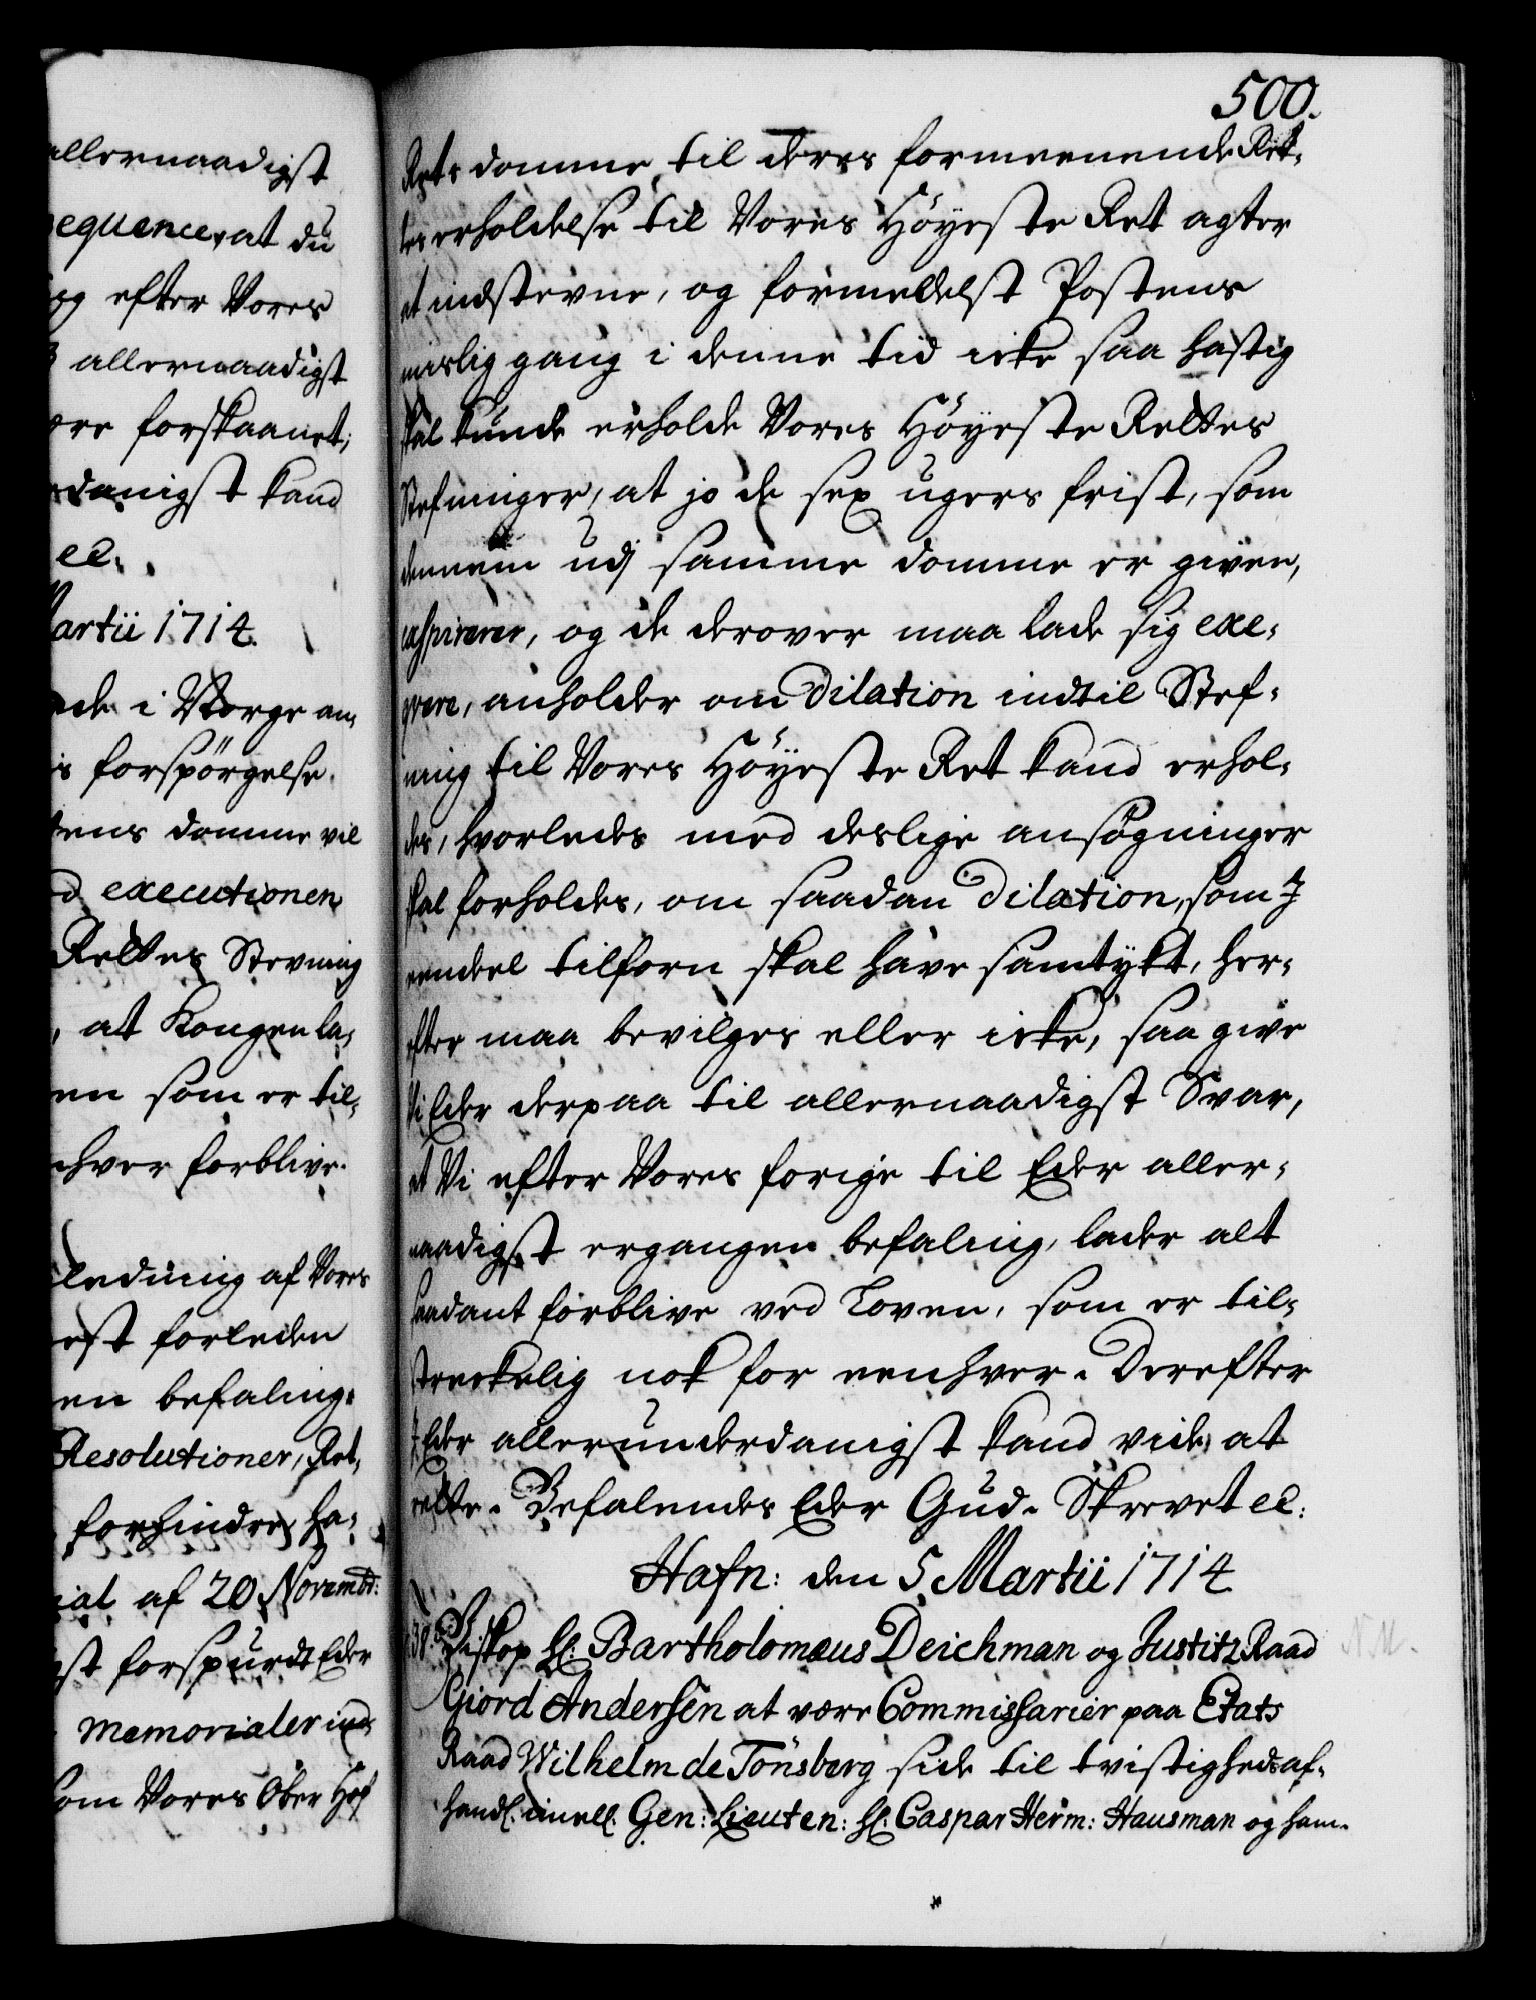 allernaadigst
sequence, at du
og efter Vores
allernaadigst
være forskaanet,
danigst kand
ec:
Martii 1714.
i Norge an,
forspörgelse
tens domme vil
executionen
Rettes Stevning
, at Kongen la,
en som er til,
nhver forblive.
ledning af Vores
est forleden
en befaling,
Resolutioner, Ret,
forhindres ha,
rial af 20 Novembr:
gst forspurdt Eder
Memorialer ind,
som Vores Ober Hof
500.
Rets domme til deres formeenende Ret,
tes erholdelse til Vores Höyeste Ret agter
at indstevne, og formedelst Postens
mislig gang i denne tid icke saa hastig
skal kunde erholde Vores Höyeste Rettes
Stefninger, at jo de sex ugers frist, som
dennem udj samme domme er given,
exspirerer, og de derover maa lade sig exe,
qvere, anholder om Dilation indtil Stef,
ning til Vores Höyeste Ret kand erhol,
des, hvorledes med deslige ansögninger
skal forholdes, om saadan Dilation, som I
eendeel tilforn skal have samtykt, her,
efter maa bevilges eller icke, saa give
Vi Eder derpaa til allernaadigst Svar,
at Vi efter Vores forige til Eder aller,
naadigst ergangen befaling, lader alt
saadant forblive ved Loven, som er til,
streckelig nok for eenhver. Derefter
I Eder allerunderdanigst kand vide at
rette. Befalendes Eder Gud. Skrevet ec:
Hafn: den 5 Martii 1714
38. Biskop Hl: Bartholomæus Deichman og Justitz Raad
Giord Andersen at være Commissarier paa Etats
Raad Wilhelm de Tönsberg side til tvistigheds af,
handl: imell: Gen: Lieuten: Hl: Caspar Herm: Hausman og ham.
N.M.